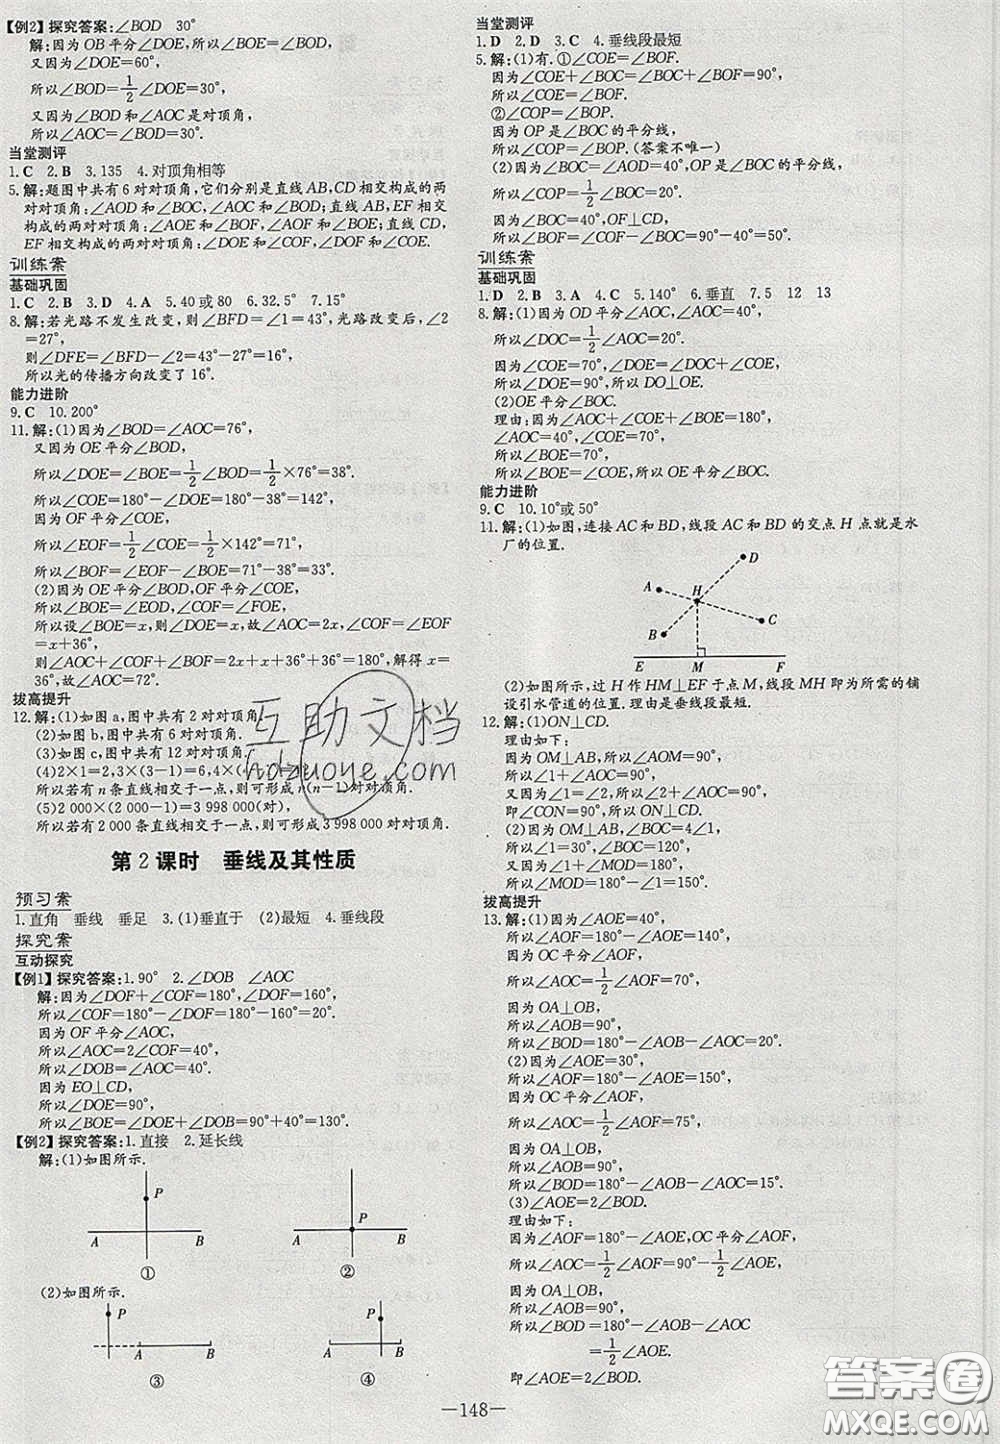 【例2】探究答案:∠BOD 30°
解:因为OB平分∠DOE,所以∠BOE=∠BOD,
又因为∠DOE=60°,
所以∠BOD=1/2∠DOE=30°,
又因为∠BOD和∠AOC是对顶角,
所以∠AOC=∠BOD=30°.
当堂测评
1.C 2.B 3.135 4.对顶角相等
5.解:题图中共有6对对顶角,它们分别是直线AB,CD相交构成的两
对对顶角:∠AOD和∠BOC,∠AOC和∠BOD;直线AB,EF相交
构成的两对对顶角:∠AOE和∠BOF,∠AOF和∠BOE;直线CD,
EF相交构成的两对对顶角:∠DOE和∠COF,∠DOF和∠COE.
训练案
基础巩固
1.C 2.B 3.D 4.A 5.40或80 6.32.5° 7.15°
8.解:若光路不发生改变,则∠BFD=∠1=43°,光路改变后,∠2
=27°,
则∠DFE=∠BFD-∠2=43°-27°=16°.
所以光的传播方向改变了16°.
能力进阶
9.C 10.200°
11.解:(1)因为∠BOD=∠AOC=76°,
又因为OE平分∠BOD,
所以∠DOE=∠BOE=1/2∠BOD=1/2×76°=38°.
所以∠COE=180°-∠DOE=180°-38°=142°,
因为OF平分∠COE,
所以∠EOF=1/2∠COE=1/2×142°=71°,
所以∠BOF=∠EOF-∠BOE=71°-38°=33°.
(2)因为OE平分∠BOD,OF平分∠COE,
所以∠BOE=∠EOD,∠COF=∠FOE,
所以设∠BOE=x,则∠DOE=x,故∠AOC=2x,∠COF=∠EOF
=x+36°,
则∠AOC+∠COF+∠BOF=2x+x+36°+36°=180°,解得x=
36°,故∠AOC=72°.
拔高提升
12.解:(1)如图a,图中共有2对对顶角.
(2)如图b,图中共有6对对顶角.
(3)如图c,图中共有12对对顶角.
(4)2×1=2,3×
所以若有n条直线相交于一点,则可形成n(n-1)对对顶角.
(5)2 000×(2 000-1)=3 998 000(对),
所以若有2 000条直线相交于一点,则可形成3 998 000对对顶角.
第2课时 垂线及其性质
预习案
1.直角 垂线 垂足 3.(1)垂直于 (2)最短 4.垂线段
探究案
互动探究
【例1】探究答案:1.90° 2.∠DOB ∠AOC
解:因为∠DOF+∠COF=180°,∠DOF=160°,
所以∠COF=180°-∠DOF=180°-160°=20°.
因为OF平分∠AOC,
所以∠AOC=2∠COF=40°,
所以∠DOB=∠AOC=40°.
因为EO⊥CD,
所以∠DOE=90°,
所以∠BOE=∠DOE+∠DOB=90°+40°=130°.
【例2】探究答案:1.直接 2.延长线
解:(1)如图所示.
P
A B
①
P
A B
②
(2)如图所示.
P
A B
③
P
A B
④
当堂测评
1.D 2.D 3.C 4.垂线段最短
5.解:(1)有.①∠COE=∠BOF.
因为∠COE+∠BOC=∠BOC+∠BOF=90°,
所以∠COE=∠BOF.
②∠COP=∠BOP.
因为OP是∠BOC的平分线,
所以∠COP=∠BOP.(答案不唯一)
(2)因为∠BOC=∠AOD=40°,OP是∠BOC的平分线,
所以∠COP=1/2∠BOC=20°.
因为∠BOC=40°,OF⊥CD,
所以∠BOF=∠COF-∠BOC=90°-40°=50°.
训练案
基础巩固
1.D 2.D 3.C 4.C 5.140° 6.垂直 7.5 12 13
8.解:(1)因为OD平分∠AOC,∠AOC=40°,
所以∠DOC=1/2∠AOC=20°.
因为∠COE=70°,∠DOE=∠DOC+∠COE,
所以∠DOE=90°,所以DO⊥OE.
(2)OE平分∠BOC.
理由:因为∠AOC+∠COE+∠BOE=180°,
∠AOC=40°,∠COE=70°,
所以∠BOE=70°,
所以∠BOE=∠COE,所以OE平分∠BOC.
能力进阶
9.C 10.10°或50°
11.解:(1)如图,连接AC和BD,线段AC和BD的交点H点就是水
厂的位置.
D
A H
C
B
E M F
(2)如图所示,过H作HM⊥EF于点M,线段MH即为所需的铺
设引水管道的位置.理由是垂线段最短.
12.解:(1)ON⊥CD.
理由如下:
因为OM⊥AB,所以∠AOM=90°,
所以∠1+∠AOC=90°,
又∠1=∠2,所以∠2+∠AOC=90°,
即∠CON=90°,所以ON⊥CD.
(2)因为OM⊥AB,∠BOC=4∠1,
所以∠1=30°,∠BOC=120°,
又∠1+∠MOD=180°,
所以∠MOD=180°-∠1=150°.
拔高提升
13.解:(1)因为∠AOE=40°,
所以∠AOF=180°-∠AOE=140°,
因为OC平分∠AOF,
所以∠AOC=1/2∠AOF=70°,
因为OA⊥OB,
所以∠AOB=90°,
所以∠BOD=180°-∠AOB-∠AOC=20°.
(2)因为∠AOE=30°,
所以∠AOF=180°-∠AOE=150°,
因为OC平分∠AOF,
所以∠AOC=1/2∠AOF=75°,
因为OA⊥OB,
所以∠AOB=90°,
所以∠BOD=180°-∠AOB-∠AOC=15°.
(3)∠AOE=2∠BOD.
理由如下:
因为∠AOF=180°-∠AOE,OC平分∠AOF,
所以∠AOC=1/2∠AOF=90°-1/2∠AOE,
因为OA⊥OB,
所以∠AOB=90°,
所以∠BOD=180°-∠AOB-∠AOC
=1/2∠AOE.
即∠AOE=2∠BOD.
—148—
互助文档
hdzuoye.com
答案圈
MXQE.COM